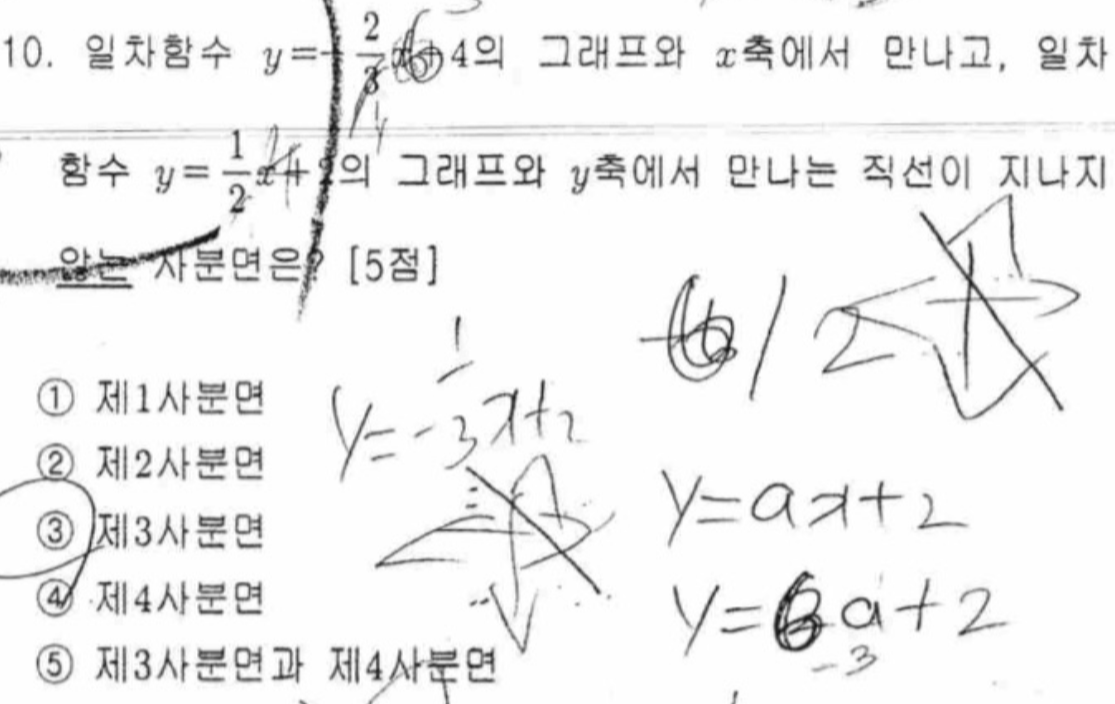 10. 일차함수 y=-2/3x+4의 그래프와 x축에서 만나고, 일차
함수 y=1/2x+2의 그래프와 y축에서 만나는 직선이 지나지
않는 사분면은? [5점]
6/2
① 제1사분면
y=-1/3x+2
② 제2사분면
y=ax+2
③ 제3사분면
④ 제4사분면
y=6a+2
-3
⑤ 제3사분면과 제4사분면